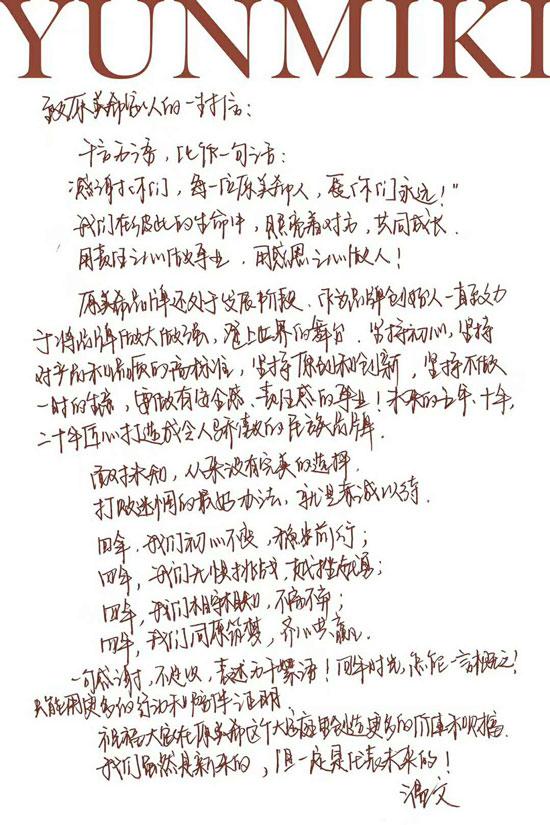 YUNMIKI
致原美希家人的一封信：
千言万语，比作一句话：
"感谢你们，每一位原美希人，爱你们永远！"
我们在彼此的生命中，照亮着对方，共同成长
用责任之心做事业，用感恩之心做人！
原美希品牌还处于发展阶段，作为品牌创始人一直致力
于将品牌做大做强，登上世界的舞台。坚持初心，坚持
对产品和品质的高标准，坚持原创和创新，坚持不做
一时的生意，要做有使命感、责任感的事业！未来的五年、十年、
二十年匠心打造成令人尊敬的民族品牌
面对未知，从来没有完美的选择
打败迷惘的最好办法，就是赤诚以待
四年，我们初心不变，稳步前行；
四年，我们无惧挑战，越挫越勇；
四年，我们相守相知，不离不弃；
四年，我们同原筑梦，齐心共赢
一句感谢，不足以表述万千絮语！四年时光，怎能一言概之！
只能用更多的行动和陪伴证明
祝福大家在原美希这个大家庭里创造更多的价值和幸福
我们虽然是新来的，但一定是代表未来的！
温文